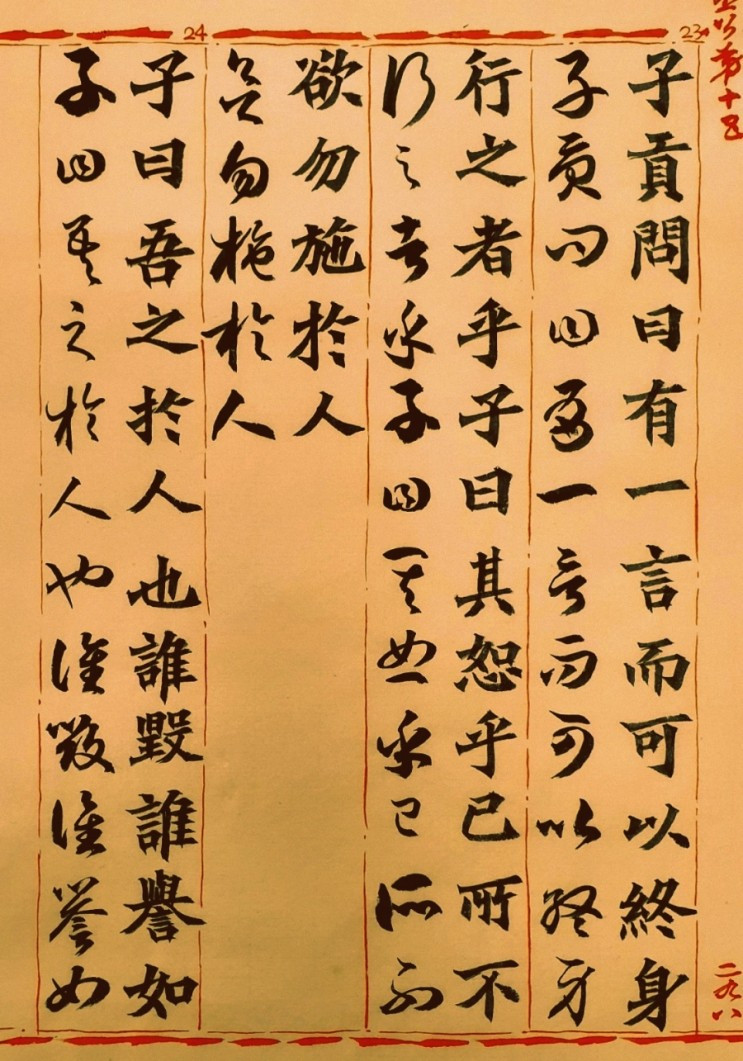 23
子貢問曰有一言而可以終身
子貢曰曰有一言而可以終身
行之者乎子曰其恕乎己所不
行之者乎子曰其恕乎己所不
欲勿施於人
欲勿施於人
24
子曰吾之於人也誰毀誰譽如
子曰吾之於人也誰毀誰譽如
第十五
二九八